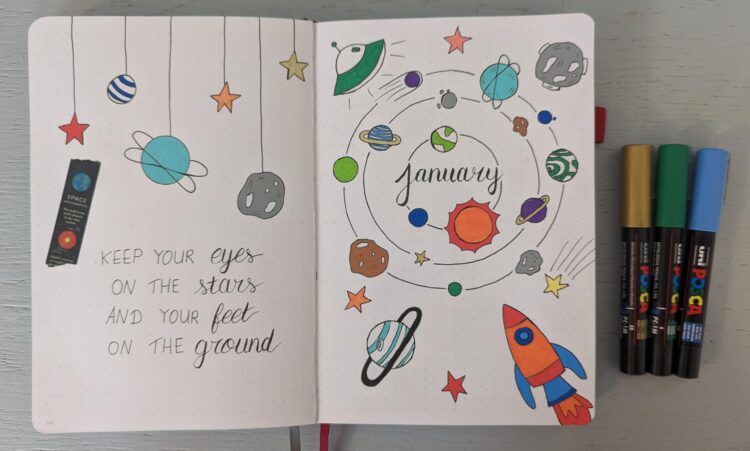 SPACE
KEEP YOUR eyes
ON THE stars
AND YOUR feet
ON THE ground
january
uni
POSCA
PC-1M
uni
POSCA
uni
POSCA
PC-1M